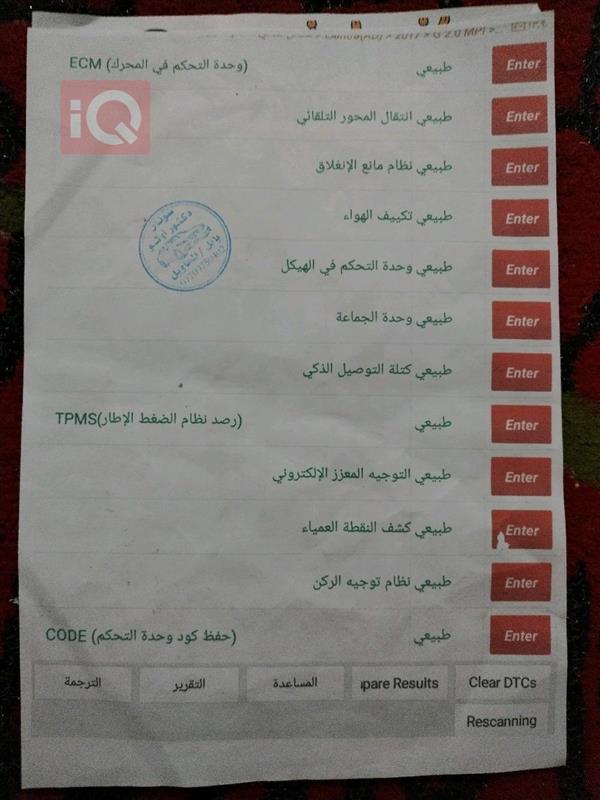 Lantra(AD) > 2017 > G 2.0 MPI >...
ECM (وحدة التحكم في المحرك) طبيعي Enter
iQ
طبيعي انتقال المحور التلقائي Enter
طبيعي نظام مانع الإنغلاق Enter
طبيعي تكييف الهواء Enter
سونار
دكتور اوتو
بابل / النيل
طبيعي وحدة التحكم في الهيكل Enter
طبيعي وحدة الجماعة Enter
طبيعي كتلة التوصيل الذكي Enter
TPMS(رصد نظام الضغط الإطار) طبيعي Enter
طبيعي التوجيه المعزز الإلكتروني Enter
طبيعي كشف النقطة العمياء Enter
طبيعي نظام توجيه الركن Enter
CODE (حفظ كود وحدة التحكم) طبيعي Enter
الترجمة التقرير المساعدة ıpare Results Clear DTCs
Rescanning